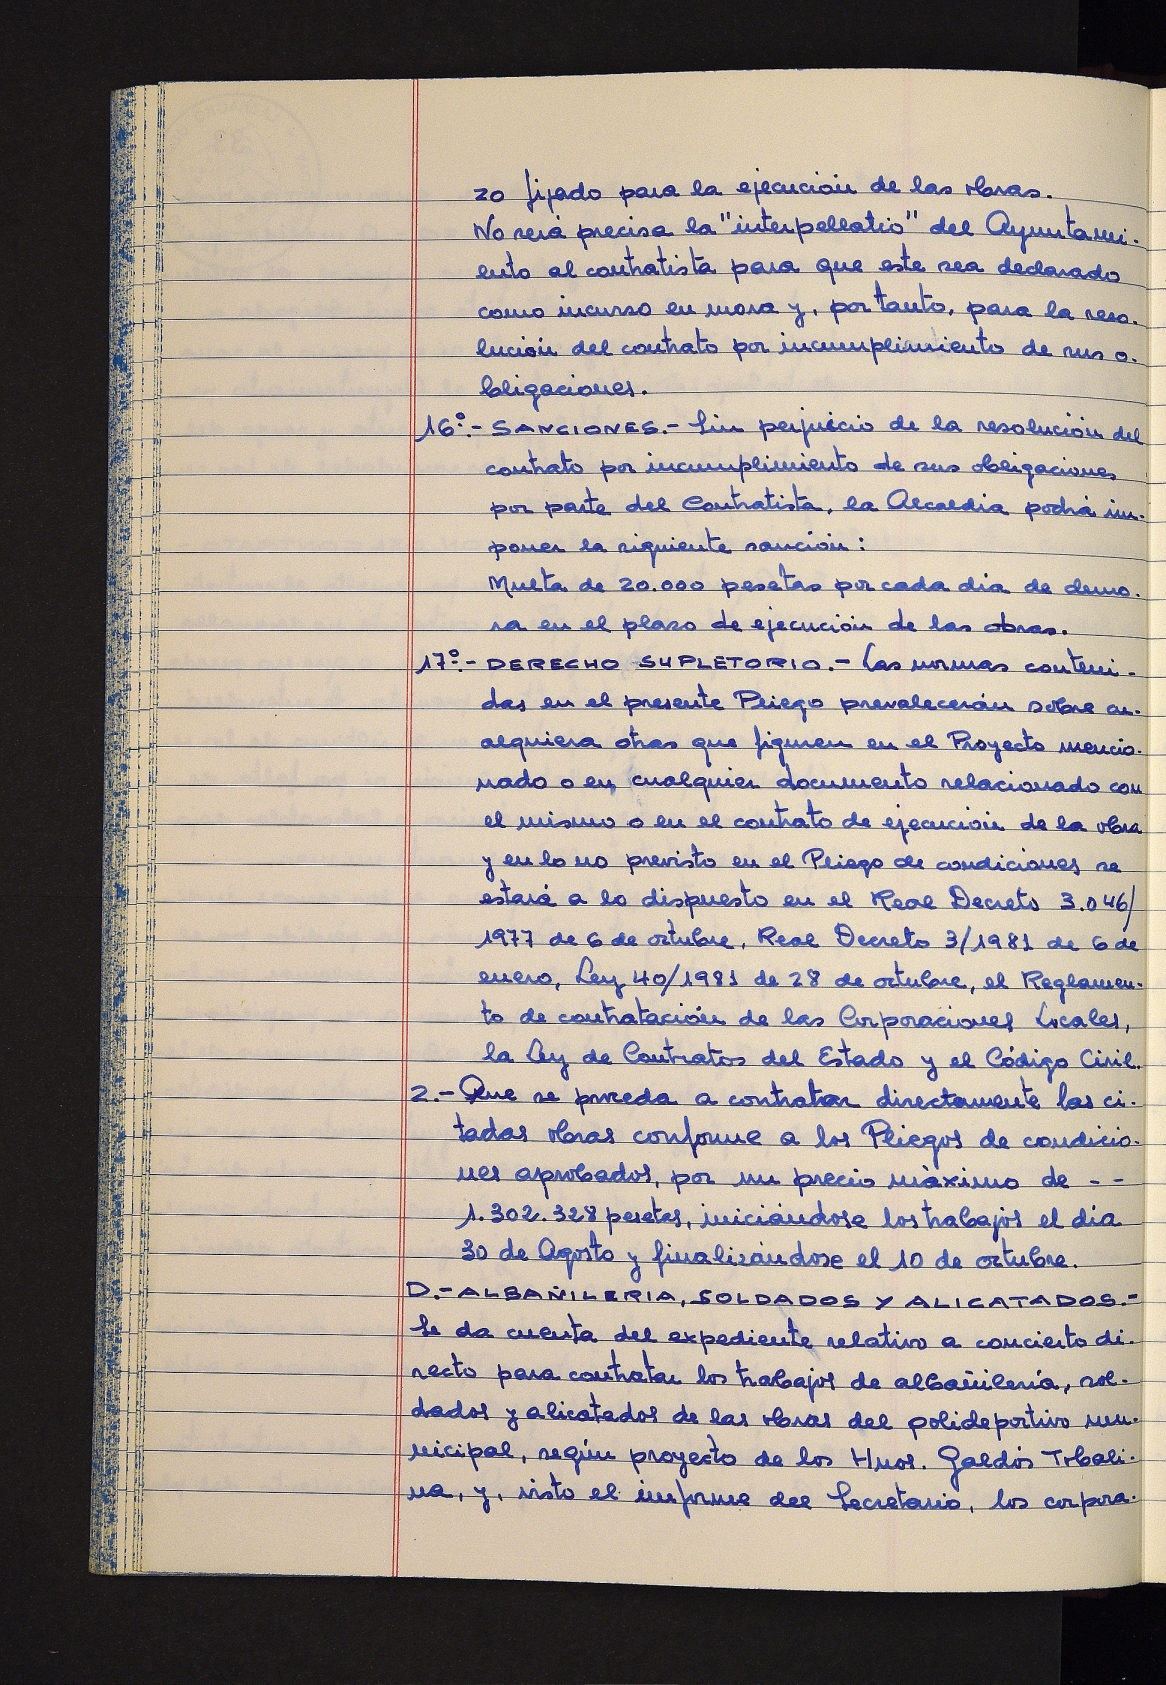 zo fijado para la ejecución de las obras.
No será precisa la "interpellatio" del Ayuntami-
ento al contratista para que este sea declarado
como incurso en mora y, por tanto, para la reso-
lución del contrato por incumplimiento de sus o-
bligaciones.
16º.- SANCIONES.- Sin perjuicio de la resolución del
contrato por incumplimiento de sus obligaciones
por parte del Contratista, la Alcaldia podrá im-
poner la siguiente sanción:
Multa de 20.000 pesetas por cada dia de demo-
ra en el plazo de ejecución de las obras.
17º.- DERECHO SUPLETORIO.- Las normas conteni-
das en el presente Pliego prevalecerán sobre cu-
alquiera otras que figuren en el Proyecto mencio-
nado o en cualquier documento relacionado con
el mismo o en el contrato de ejecución de la obra
y en lo no previsto en el Pliego de condiciones se
estará a lo dispuesto en el Real Decreto 3.046/
1977 de 6 de octubre, Real Decreto 3/1981 de 6 de
enero, Ley 40/1981 de 28 de octubre, el Reglamen-
to de contratación de las Corporaciones Locales,
la Ley de Contratos del Estado y el Código Civil.
2.- Que se proceda a contratar directamente las ci-
tadas obras conforme a los Pliegos de condicio-
nes aprobados, por un precio máximo de - -
1.302.328 pesetas, iniciándose los trabajos el día
30 de Agosto y finalizándose el 10 de octubre.
D.- ALBAÑILERIA, SOLDADOS Y ALICATADOS.-
Se da cuenta del expediente relativo a concierto di-
recto para contratar los trabajos de albañilería, sol-
dados y alicatados de las obras del polideportivo mu-
nicipal, según proyecto de los Hnos. Galdós Tobali-
na, y, visto el informe del Secretario, los corpora-